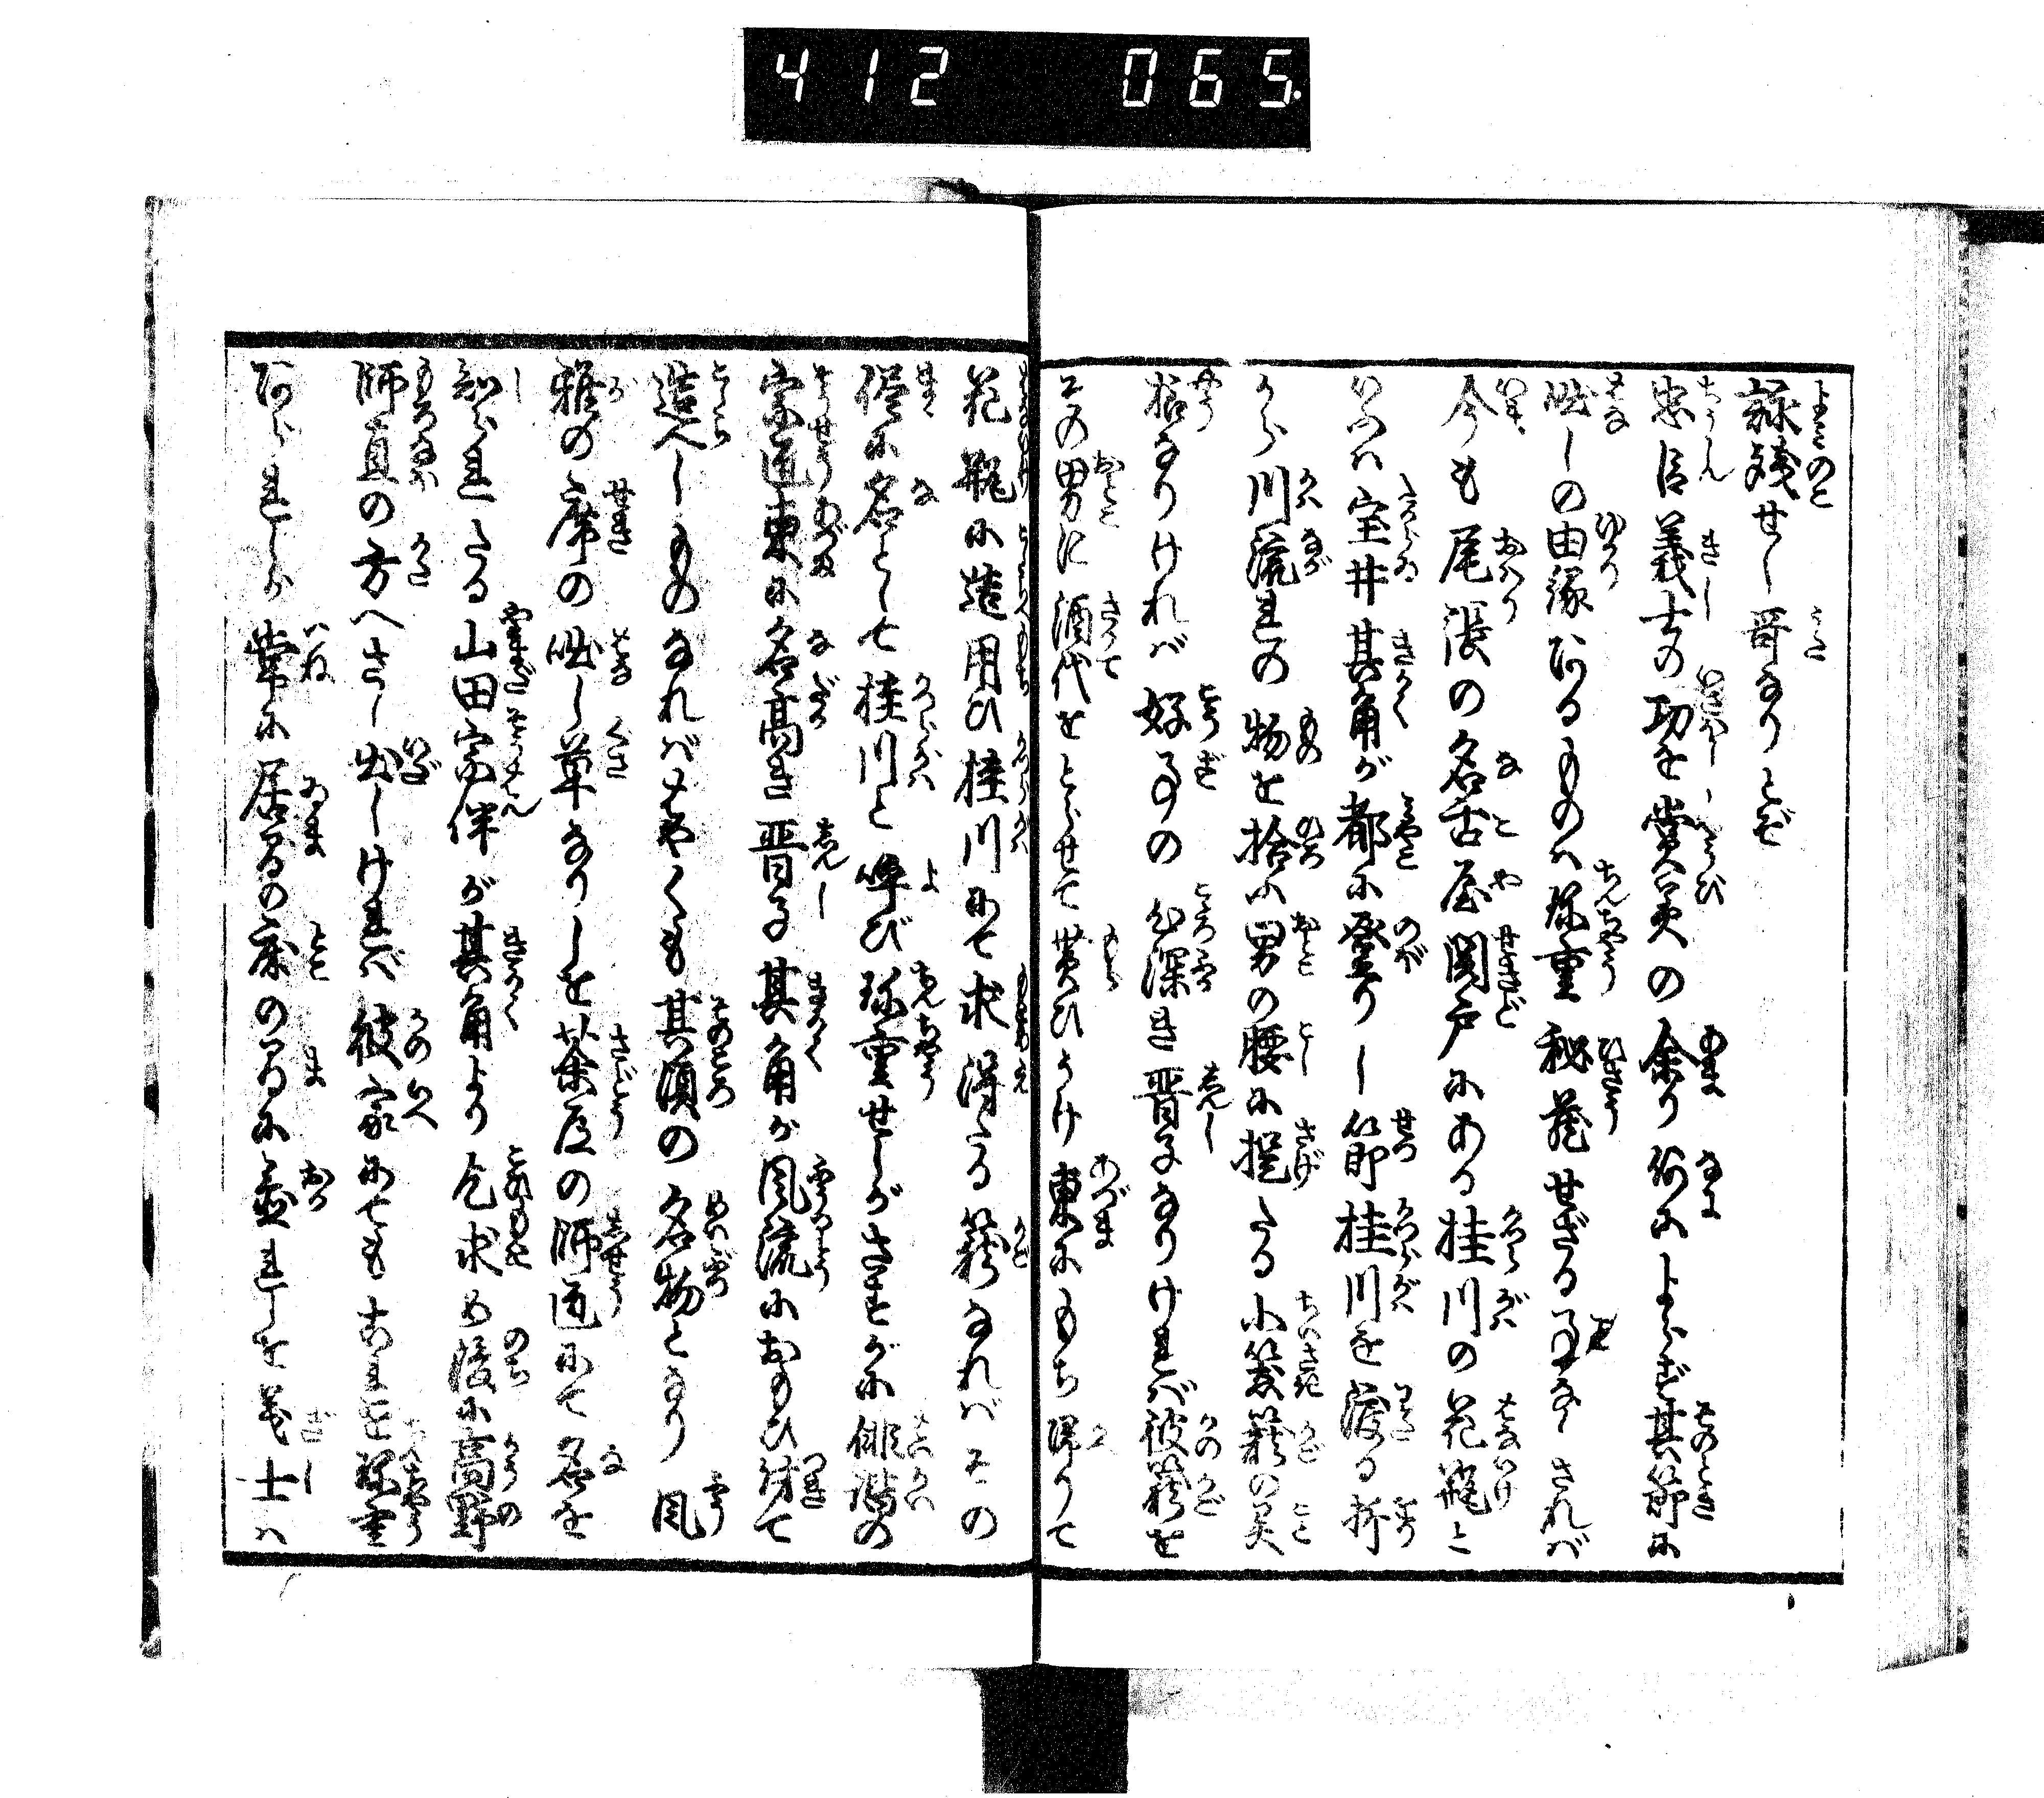 412 065.
詠残せし哥なりとぞ
忠臣義士の功を賞美の余り何によらず其節に
咄しの由縁あるものハ珍重秘蔵せざる事なしされバ
今も尾張の名古屋関戸にある桂川の花瓶と
いふハ宝井其角が都に登りし節桂川を渡る折
から川流れの物を拾ふ男の腰に提たる小籠の美
なりけれバ好事の心深き晋子なりけれバ彼籠を
その男に酒代をとらせて貰ひうけ東にもち帰りて
花瓶に造用ひ桂川にて求得たる籠なれバその
侭に名として桂川と呼び珍重せしがさすがに俳諧の
宗匠東に名高き晋子其角が風流におもひ付て
造へしものなれバはやくも其頃の名物となり風
雅の席の咄し草なりしを茶道の師匠にて名を
知られたる山田宗伴が其角より乞求め後に高野
師直の方へさし出しけれバ彼家にてもこれを珍重
ありしが常に居間の床の間に置れしを義士ハ